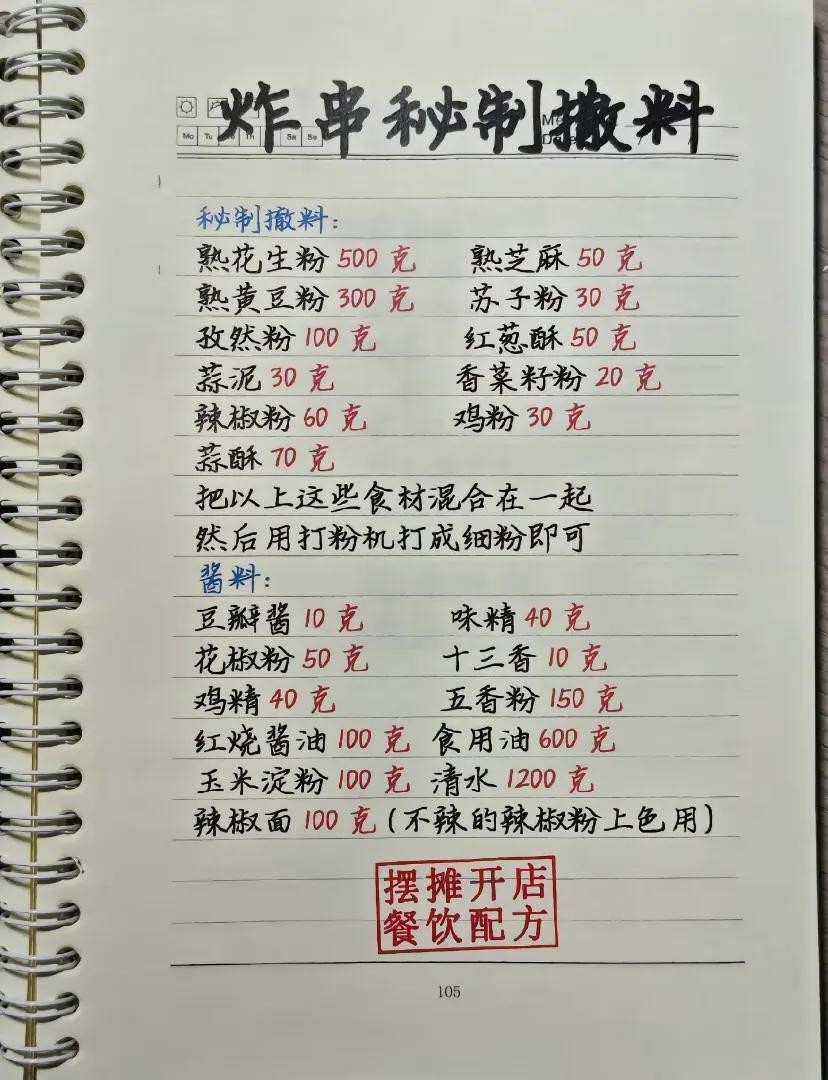 炸串秘制撒料
Mo Tu We Th Sa Su
秘制撒料：
熟花生粉 500 克 熟芝麻 50 克
熟黄豆粉 300 克 苏子粉 30 克
孜然粉 100 克 红葱酥 50 克
蒜泥 30 克 香菜籽粉 20 克
辣椒粉 60 克 鸡粉 30 克
蒜酥 70 克
把以上这些食材混合在一起
然后用打粉机打成细粉即可
酱料：
豆瓣酱 10 克 味精 40 克
花椒粉 50 克 十三香 10 克
鸡精 40 克 五香粉 150 克
红烧酱油 100 克 食用油 600 克
玉米淀粉 100 克 清水 1200 克
辣椒面 100 克（不辣的辣椒粉上色用）
摆摊开店
餐饮配方
105